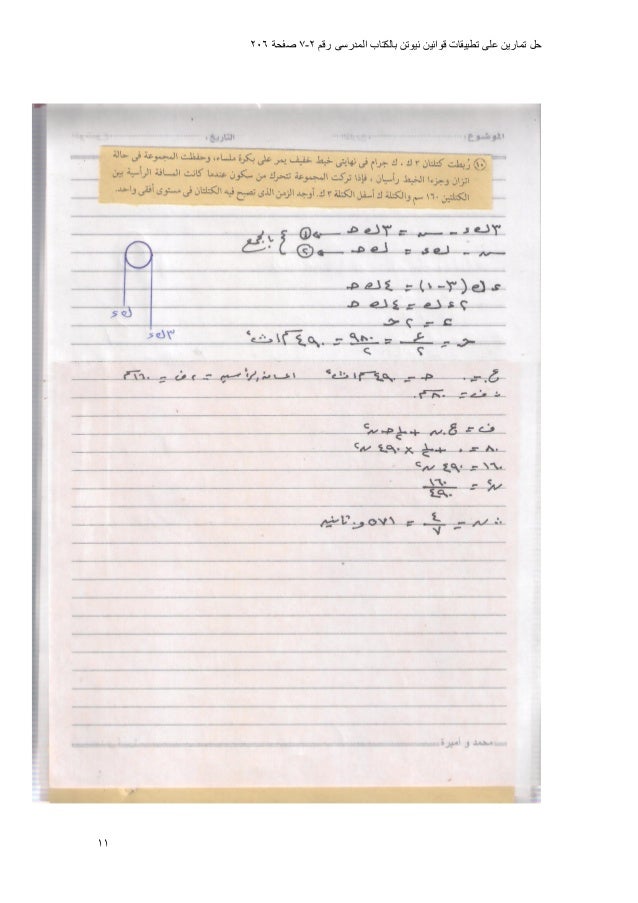 حل تمارين على تطبيقات قوانين نيوتن بالكتاب المدرسى رقم ٢-٧ صفحة ٢٠٦
الموضوع: التاريخ:
١٠ رُبطت كتلتان ٣ ك ، ك جرام فى نهايتى خيط خفيف يمر على بكرة ملساء، وحفظت المجموعة فى حالة
اتزان وجزءا الخيط رأسيان ، فإذا تركت المجموعة تتحرك من سكون عندما كانت المسافة الرأسية بين
الكتلتين ١٦٠ سم والكتلة ك أسفل الكتلة ٣ ك. أوجد الزمن الذى تصبح فيه الكتلتان فى مستوى أفقى واحد.
٣ك ء - س = ٣ك ح ← ١
س - ك ء = ك ح ← ٢ بالجمع
ء ك (٣-١) = ٤ ك ح
٢ ء ك = ٤ ك ح
ء = ٢ ح
ح = ء/٢ = ٩٨٠/٢ = ٤٩٠ سم/ث٢
ك ء
٣ك ء
ع. = ٠ ح = ٤٩٠ سم/ث٢ المسافة الرأسية = ٢ ف = ١٦٠ سم
∴ ف = ٨٠ سم
ف = ع. ن + ١/٢ ح ن٢
٨٠ = ٠ + ١/٢ × ٤٩٠ ن٢
١٦٠ = ٤٩٠ ن٢
ن٢ = ١٦٠/٤٩٠
∴ ن = ٤/٧ = ٥٧١و. ثانيه
محمد و اميرة
١١